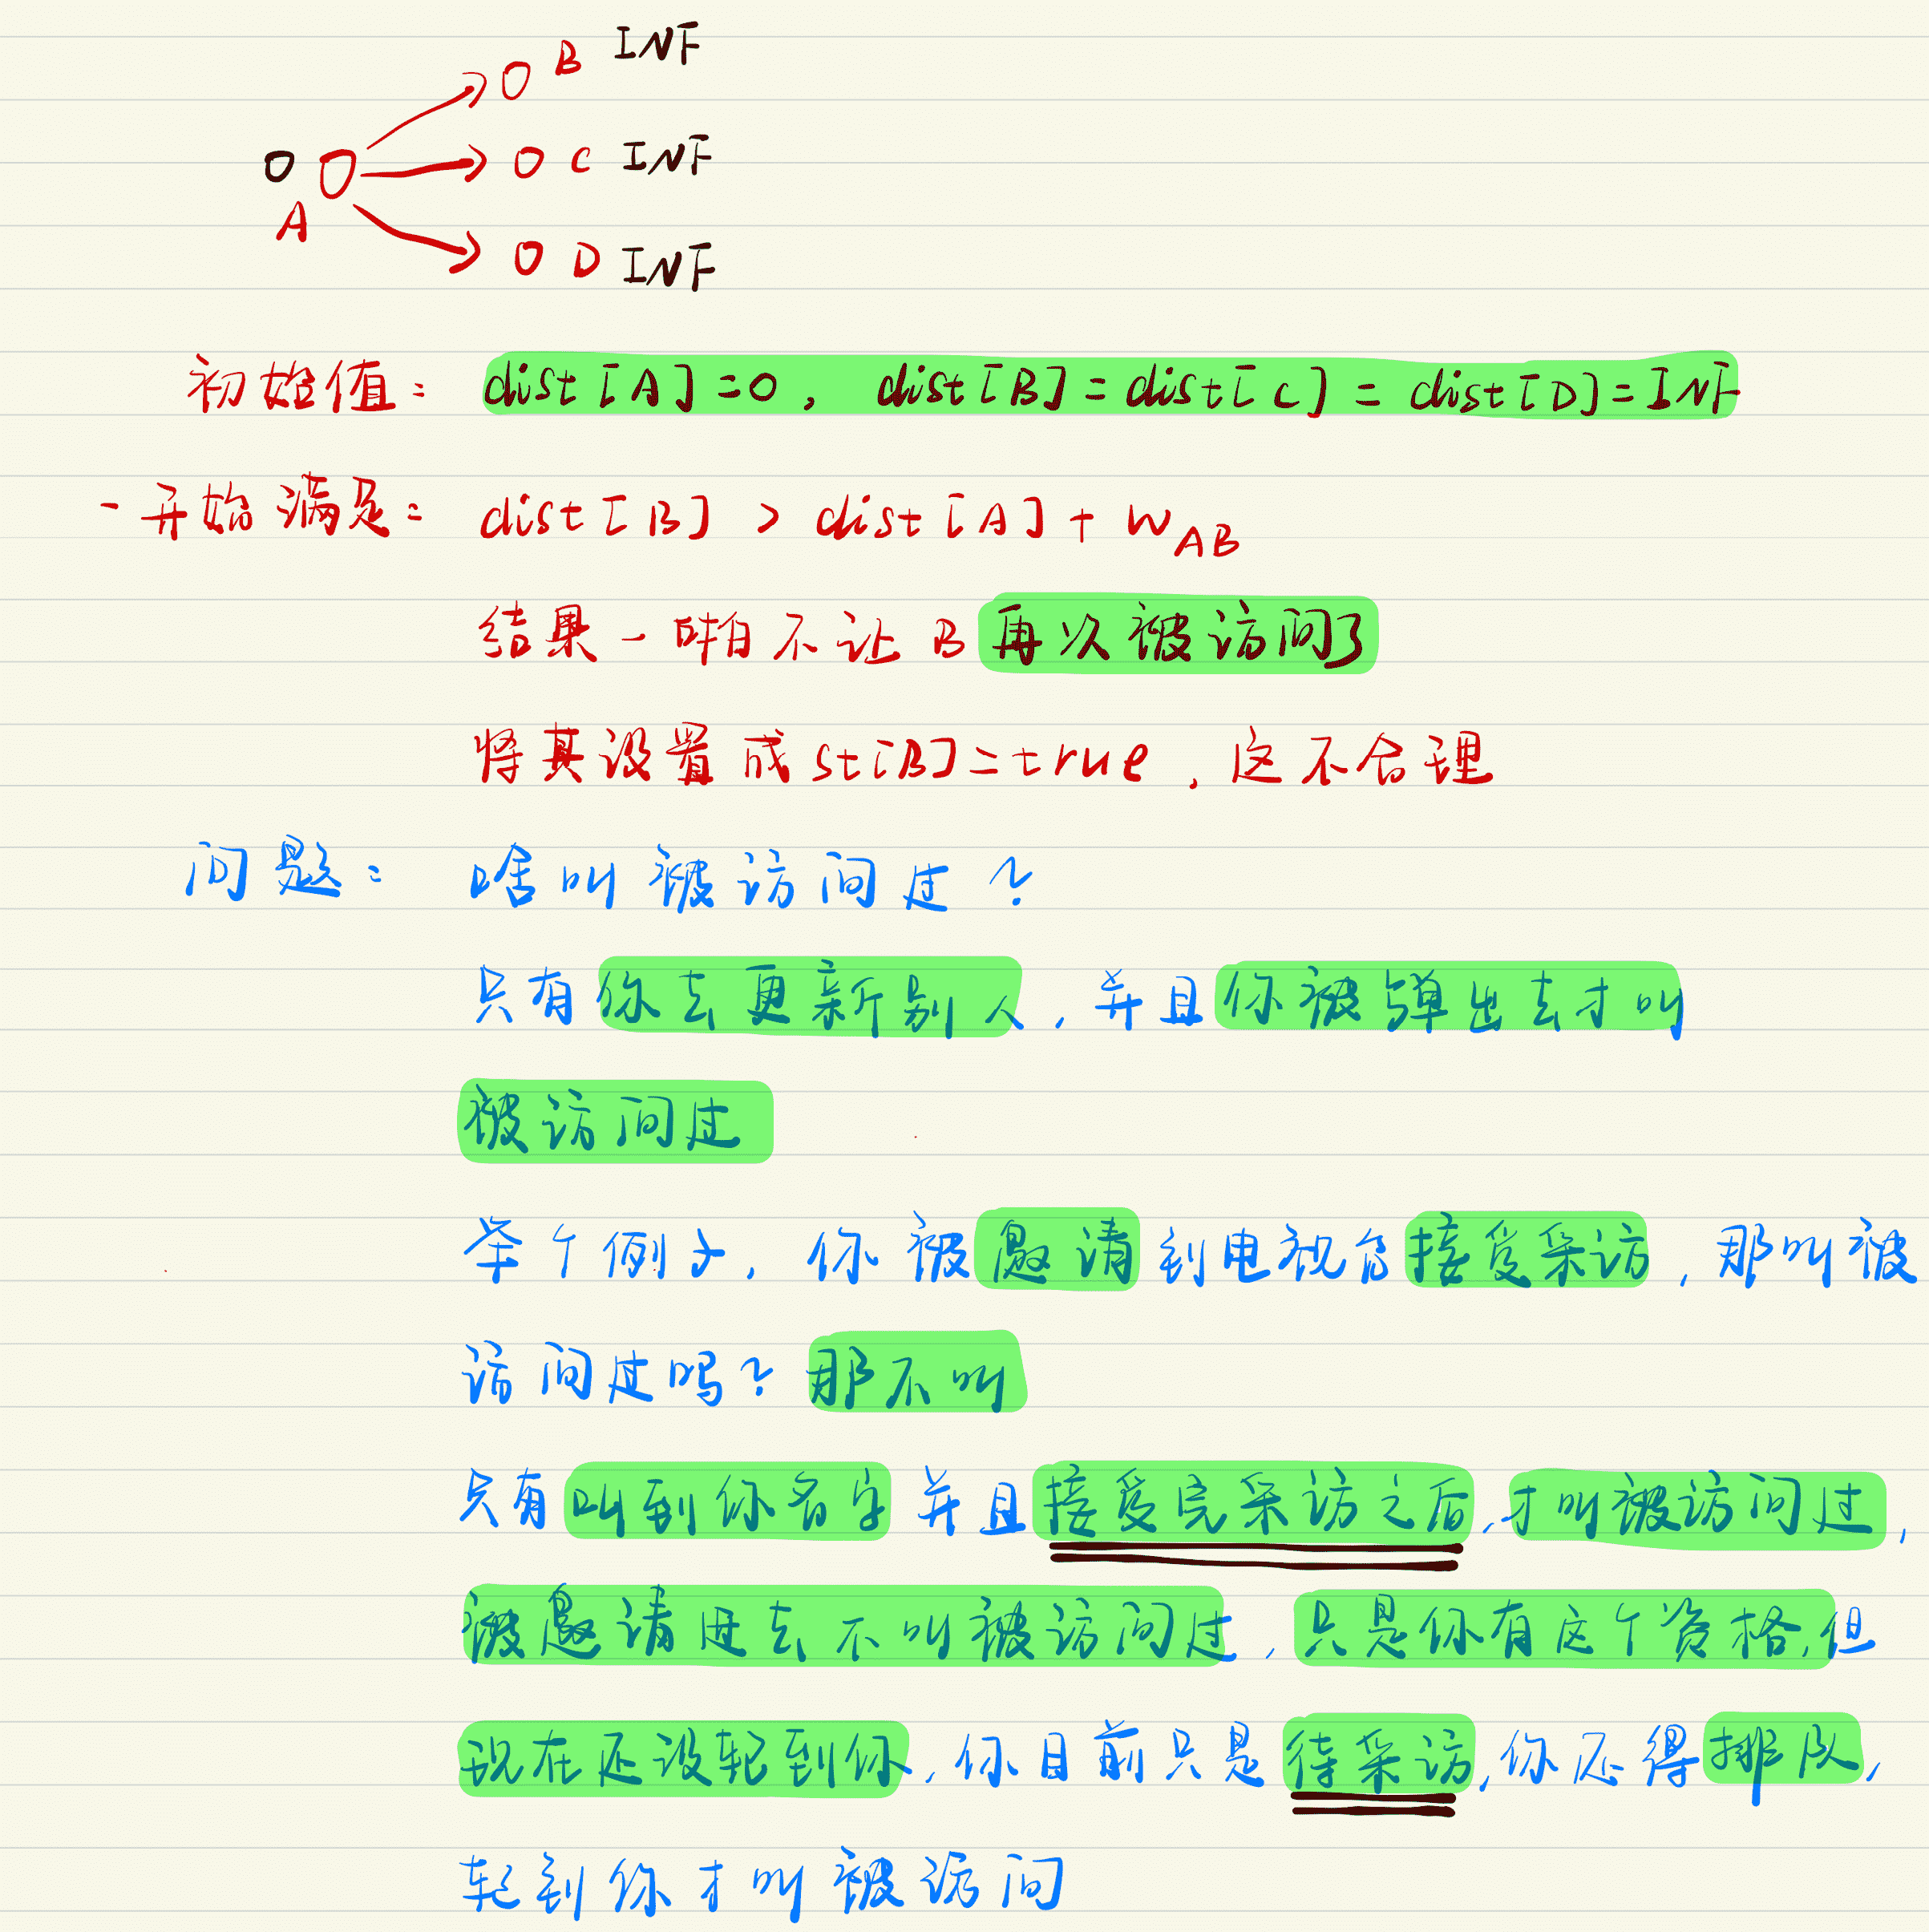 B INF
0 C INF
A
D INF
初始值: dist[A]=0, dist[B]=dist[C]=dist[D]=INF
一开始满足: dist[B] > dist[A]+W_AB
结果一啪不让B再次被访问了
将其设置成st[B]=true,这不合理
问题: 啥叫被访问过?
只有你去更新别人,并且你被弹出去才叫
被访问过
举个例子,你被邀请到电视台接受采访,那叫被
访问过吗?那不叫
只有叫到你名字并且接受完采访之后,才叫被访问过,
被邀请进去不叫被访问过,只是你有这个资格,但
现在还没轮到你,你目前只是待采访,你还得排队,
轮到你才叫被访问